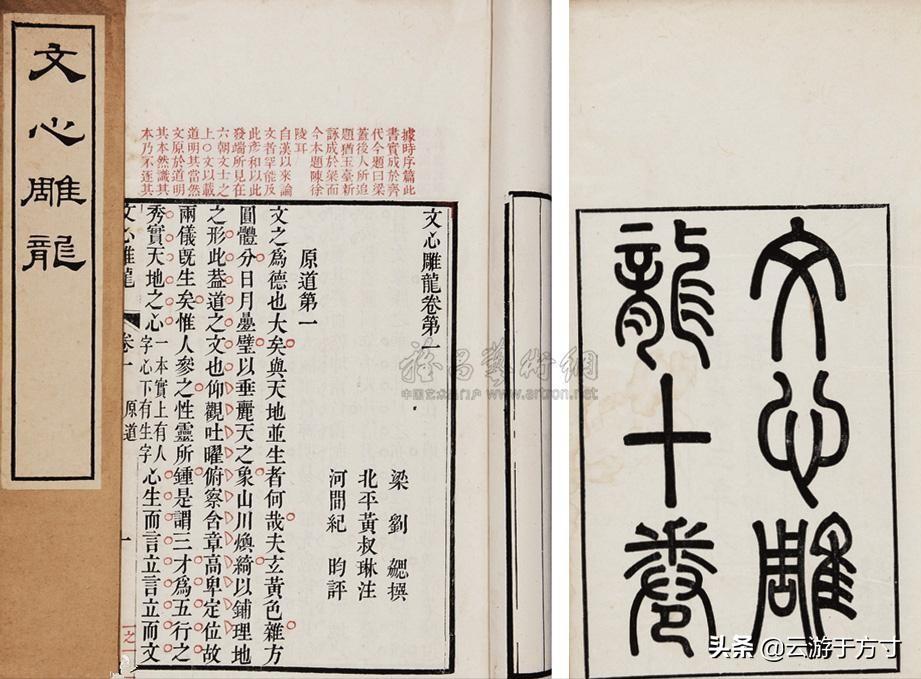 文心雕龍
據時序篇此
書實成於齊
代今題曰梁
蓋後人所追
題猶玉臺新
詠成於梁而
今本題陳徐
陵耳
自漢以來論
文者罕能及
此彥和以此
發端所見在
六朝文士之
上○文以載
道明其當然
文原於道明
其本然識其
本乃不逐其
文心雕龍卷第一
梁　劉　勰撰
北平黃叔琳注
河間紀　昀評
原道第一
文之爲德也大矣與天地並生者何哉夫玄黃色雜方
圓體分日月疊璧以垂麗天之象山川煥綺以鋪理地
之形此蓋道之文也仰觀吐曜俯察含章高卑定位故
兩儀旣生矣惟人參之性靈所鍾是謂三才爲五行之
秀實天地之心一本實上有人字心下有生字心生而言立言立而文
文心雕龍　卷一　原道　一
文心雕
龍十卷
中国艺术品门户 www.artron.net
头条 @云游于方寸